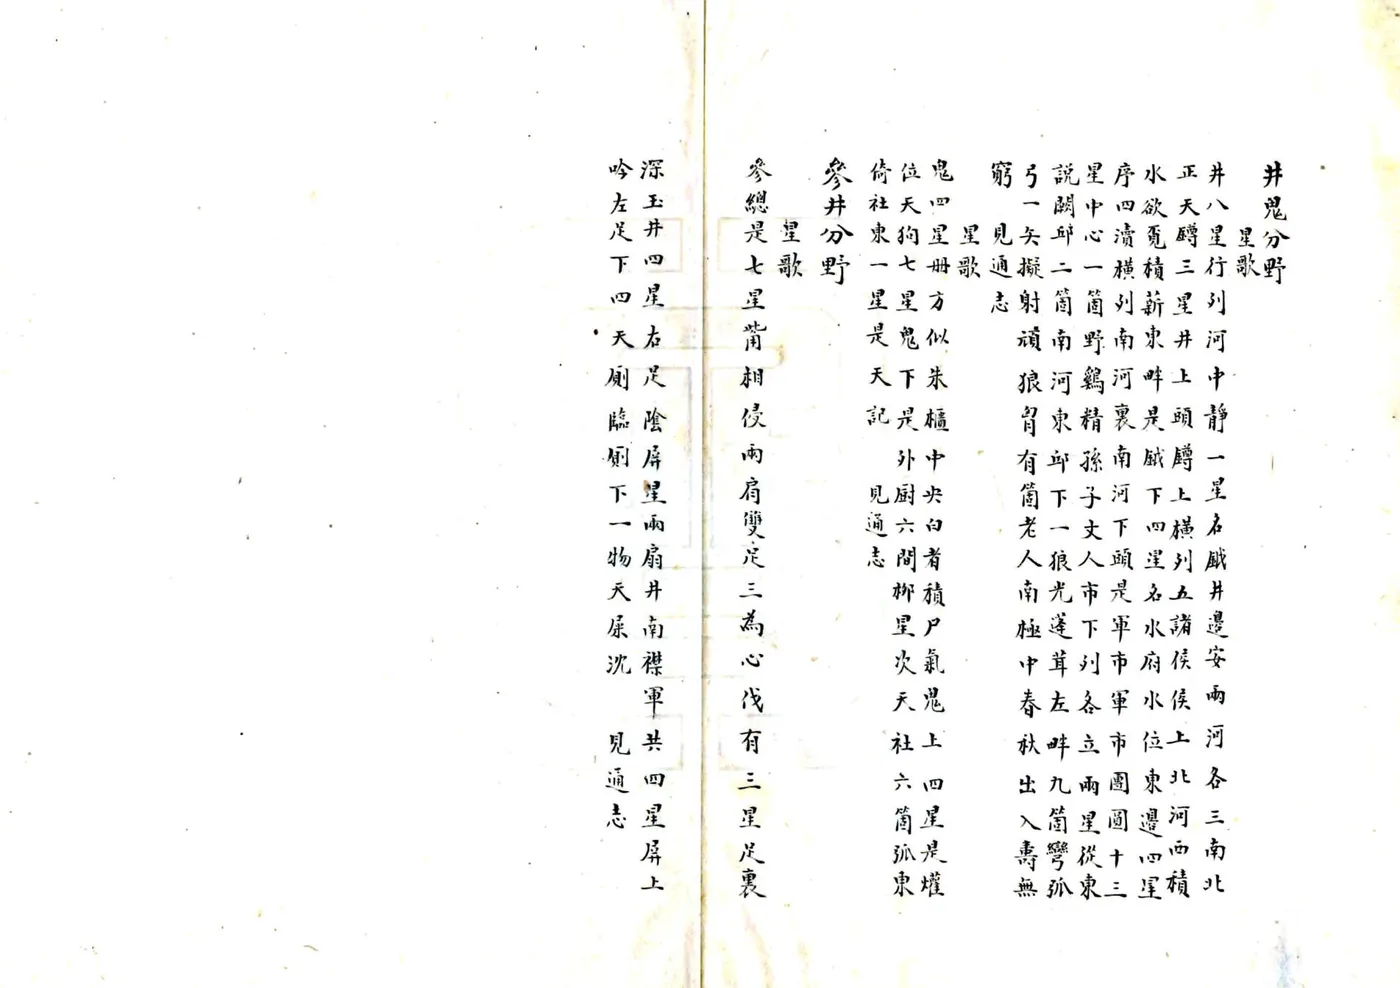 井鬼分野
星歌
井八星行列河中靜一星名鉞井邊安兩河各三南北
正天罇三星井上頭罇上橫列五諸侯侯上北河西積
水欲覓積薪東畔是鉞下四星名水府水位東邊四星
序四瀆橫列南河裏南河下頭是軍市軍市團圓十三
星中心一箇野鷄精孫子丈人市下列各立兩星從東
説闕邱二箇南河東邱下一狼光蓬茸左畔九箇彎弧
弓一矢擬射頑狼胷有箇老人南極中春秋出入壽無
窮　見通志
星歌
鬼四星冊方似朱櫃中央白者積尸氣鬼上四星是爟
位天狗七星鬼下是外厨六間柳星次天社六箇弧東
倚社東一星是天記　見通志
參井分野
星歌
參總是七星觜相侵兩肩雙足三為心伐有三星足裏
深玉井四星右足陰屏星兩扇井南襟軍共四星屏上
吟左足下四天厠臨厠下一物天屎沈　見通志